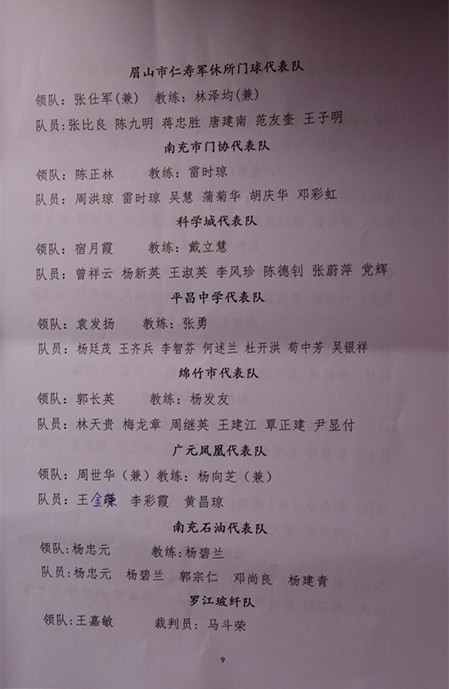 眉山市仁寿军休所门球代表队
领队：张仕军(兼)  教练：林泽均(兼)
队员:张比良 陈九明 蒋忠胜 唐建南 范友奎 王子明
南充市门协代表队
领队：陈正林  教练：雷时琼
队员：周洪琼 雷时琼 吴慧 蒲菊华 胡庆华 邓彩虹
科学城代表队
领队：宿月霞  教练：戴立慧
队员：曾祥云 杨新英 王淑英 李风珍 陈德钊 张蔚萍 党辉
平昌中学代表队
领队：袁发扬  教练：张勇
队员：杨廷茂 王齐兵 李智芬 何述兰 杜开洪 苟中芳 吴银祥
绵竹市代表队
领队：郭长英  教练：杨发友
队员：林天贵 梅龙章 周继英 王建江 覃正建 尹显付
广元凤凰代表队
领队：周世华（兼）教练：杨向芝（兼）
队员：王金 李彩霞 黄昌琼
南充石油代表队
领队:杨忠元  教练:杨碧兰
队员:杨忠元 杨碧兰 郭宗仁 邓尚良 杨建青
罗江玻纤队
领队:王嘉敏  裁判员：马斗荣
9